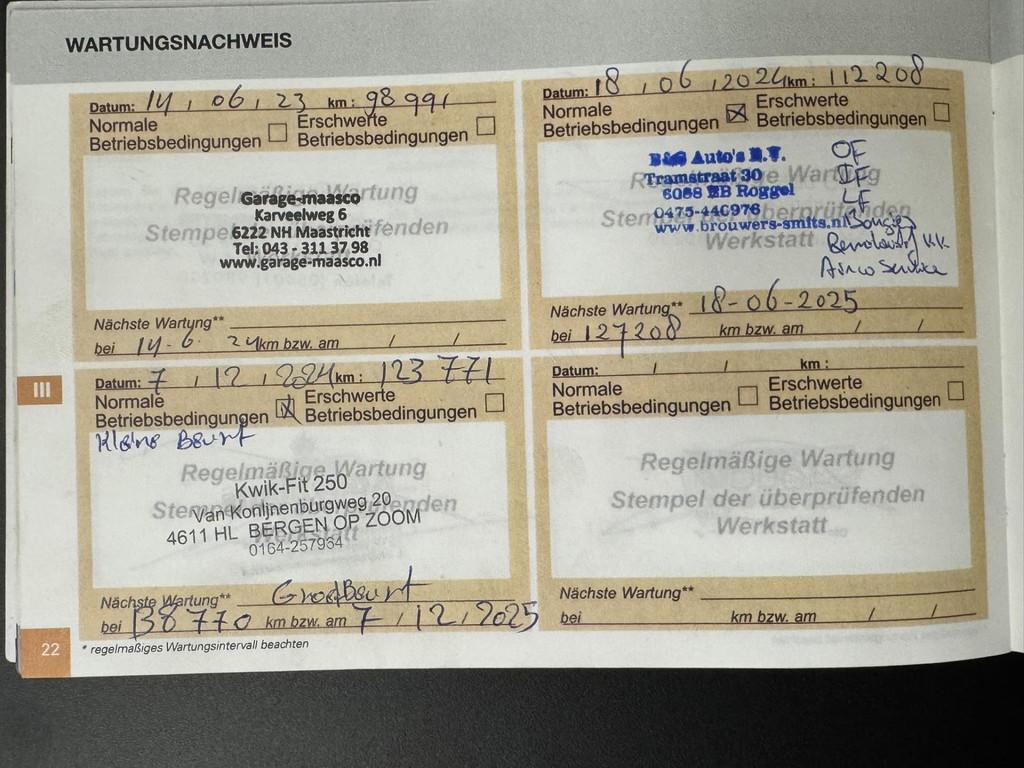 WARTUNGSNACHWEIS
Datum: 14 / 06 / 23 km: 98 991
Normale Betriebsbedingungen
Erschwerte Betriebsbedingungen
Regelmäßige Wartung
Stempel der überprüfenden
Garage-maasco
Karveelweg 6
6222 NH Maastricht
Tel: 043 - 311 37 98
www.garage-maasco.nl
Nächste Wartung**
bei 14-6. 24 km bzw. am / /
Datum: 18 / 06 / 2024 km: 112208
Normale Betriebsbedingungen
Erschwerte Betriebsbedingungen
Regelmäßige Wartung
Stempel der überprüfenden
Werkstatt
B&S Auto's B.V.
Tramstraat 30
6088 EB Roggel
0475-440976
www.brouwers-smits.nl
OF
IF
LF
Bougies
KK
Airco Service
Nächste Wartung** 18-06-2025
bei 127208 km bzw. am / /
III
Datum: 7 / 12 / 2024 km: 123 771
Normale Betriebsbedingungen
Erschwerte Betriebsbedingungen
Kleine Beurt
Regelmäßige Wartung
Stempel der überprüfenden
Werkstatt
Kwik-Fit 250
Van Konijnenburgweg 20
4611 HL BERGEN OP ZOOM
0164-257964
Nächste Wartung** Groot Beurt
bei 138770 km bzw. am 7 / 12 / 2025
Datum: / / km:
Normale Betriebsbedingungen
Erschwerte Betriebsbedingungen
Regelmäßige Wartung
Stempel der überprüfenden
Werkstatt
Nächste Wartung**
bei km bzw. am / /
22
* regelmaßiges Wartungsintervall beachten